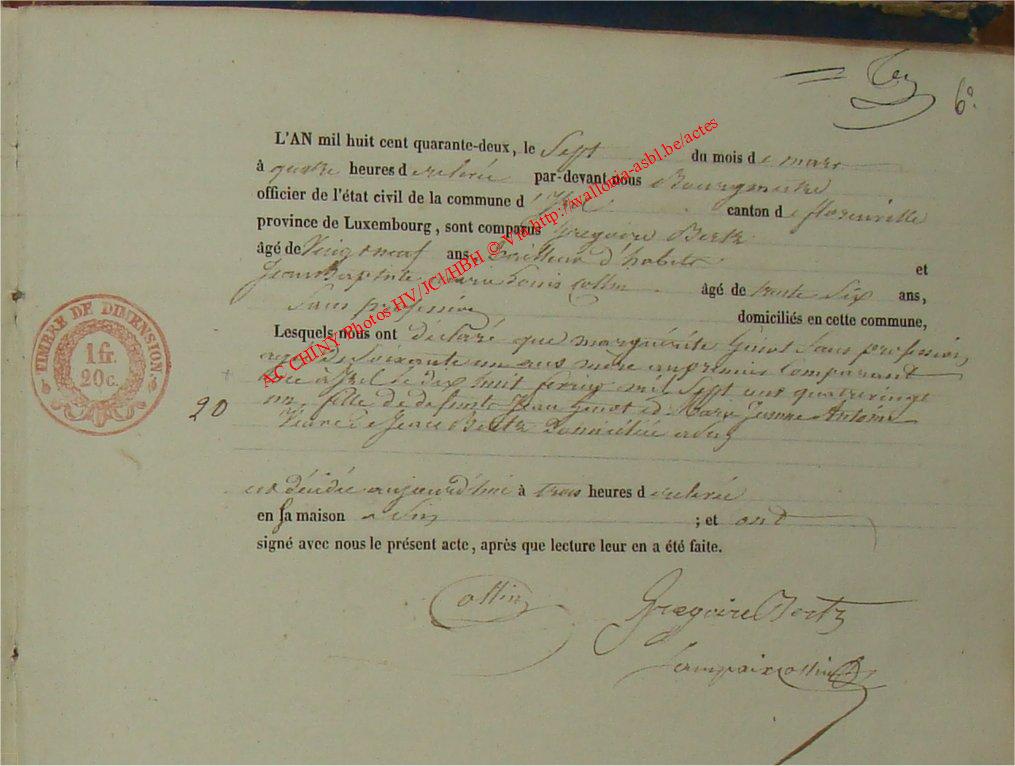 6°
L'AN mil huit cent quarante-deux, le Sept du mois de mars
à quatre heures de relevée par-devant nous Bourgmestre
officier de l'état civil de la commune d' canton de florenville
province de Luxembourg, sont comparus Gregoire Bertz
âgé de Vingt neuf ans, tailleur d'habits et
Jean Baptiste Marie Louis Collin âgé de trente Six ans,
Sans profession domiciliés en cette commune,
Lesquels nous ont déclaré que marguérite Ginot Sans profession,
agée de Soixante un ans mère au premier Comparant
née à le dix huit mil Sept cent quatre vingt
un, fille de defunts Jean Ginot et Marie Jeanne Antoine
Veuve de Jean Bertz Domiciliée
est décédée aujourd'hui à trois heures de relevée
en sa maison ; et ont
signé avec nous le présent acte, après que lecture leur en a été faite.
Collin
Gregoire Bertz
Lampaix Collin
20
TIMBRE DE DIMENSION
1 fr.
20 c.
AC CHINY Photos HV/JCl/HBH © Via http://wallonia-asbl.be/actes